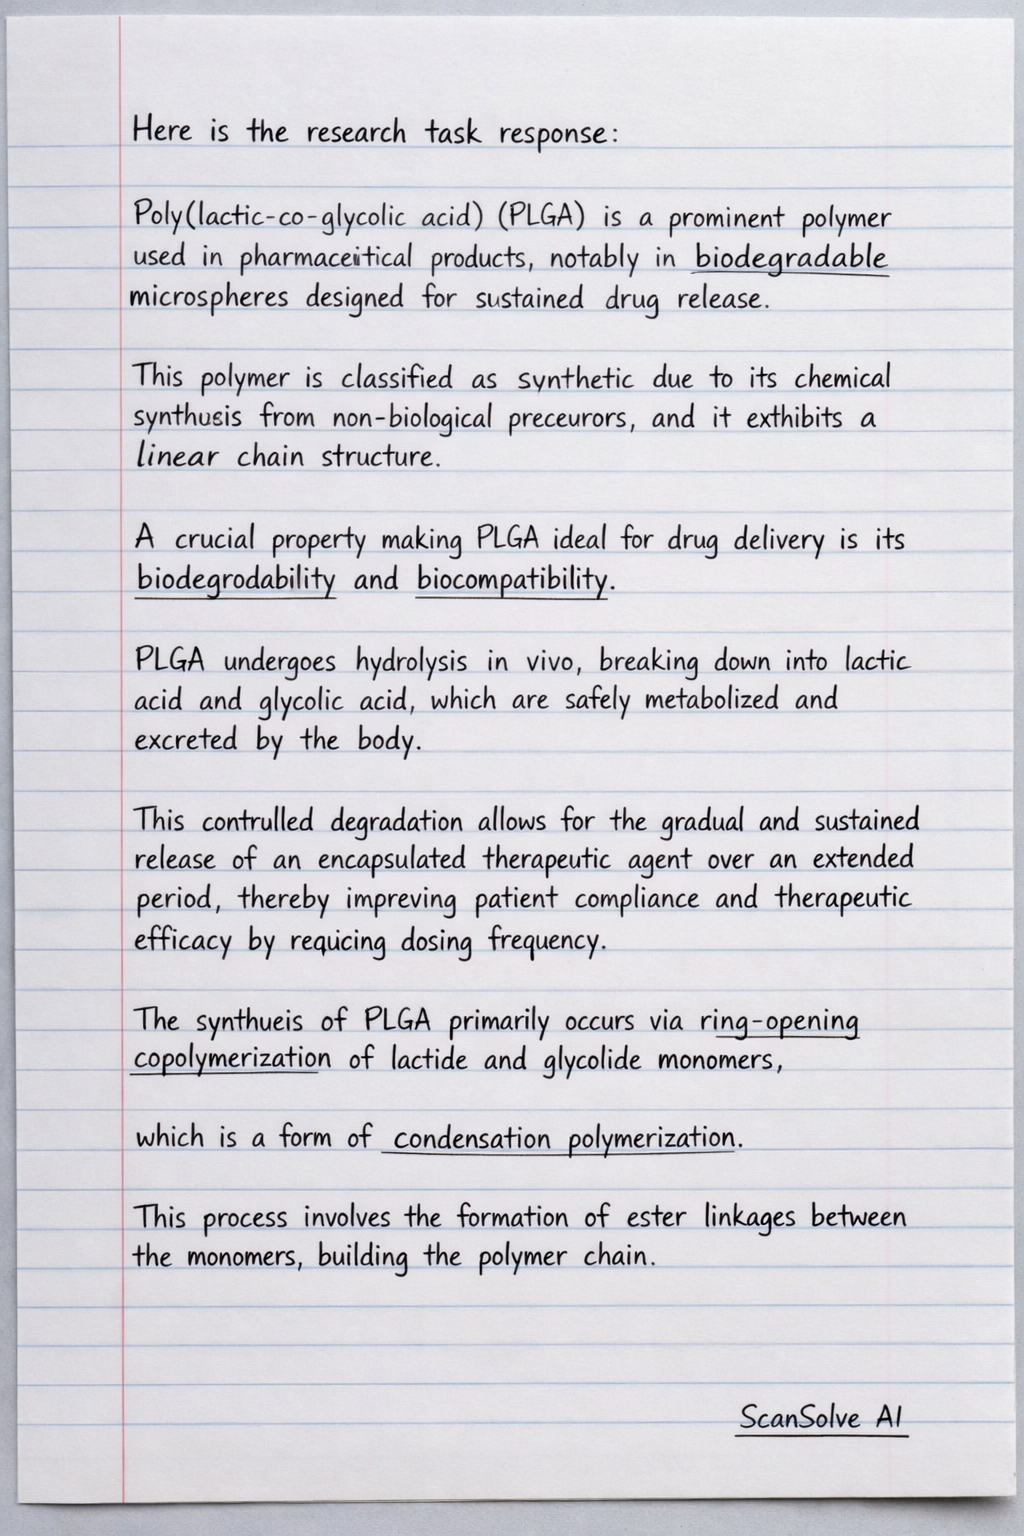 Here is the research task response:
Poly(lactic-co-glycolic acid) (PLGA) is a prominent polymer
used in pharmaceitical products, notably in biodegradable
microspheres designed for sustained drug release.
This polymer is classified as synthetic due to its chemical
synthusis from non-biological preceurors, and it exthibits a
linear chain structure.
A crucial property making PLGA ideal for drug delivery is its
biodegrodability and biocompatibility.
PLGA undergoes hydrolysis in vivo, breaking down into lactic
acid and glycolic acid, which are safely metabolized and
excreted by the body.
This contrulled degradation allows for the gradual and sustained
release of an encapsulated therapeutic agent over an extended
period, thereby impreving patient compliance and therapeutic
efficacy by requcing dosing frequency.
The synthueis of PLGA primarily occurs via ring-opening
copolymerization of lactide and glycolide monomers,
which is a form of condensation polymerization.
This process involves the formation of ester linkages between
the monomers, building the polymer chain.
ScanSolve AI